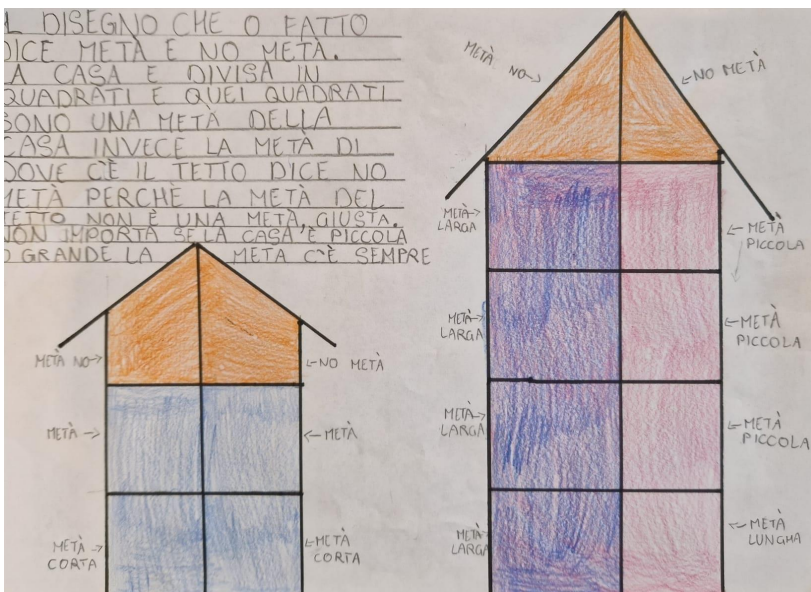 L DISEGNO CHE O FATTO
DICE METÀ E NO METÀ.
LA CASA E DIVISA IN
QUADRATI E QUEI QUADRATI
SONO UNA METÀ DELLA
CASA INVECE LA METÀ DI
DOVE C'È IL TETTO DICE NO
METÀ PERCHÈ LA METÀ DEL
TETTO NON È UNA METÀ, GIUSTA.
NON IMPORTA SE LA CASA, E PICCOLA
O GRANDE LA META C'È SEMPRE
METÀ NO
NO METÀ
METÀ
METÀ
METÀ
CORTA
METÀ
CORTA
METÀ NO
NO METÀ
METÀ
LARGA
METÀ
PICCOLA
METÀ
LARGA
METÀ
PICCOLA
METÀ
LARGA
METÀ
PICCOLA
METÀ
LARGA
METÀ
LUNGHA